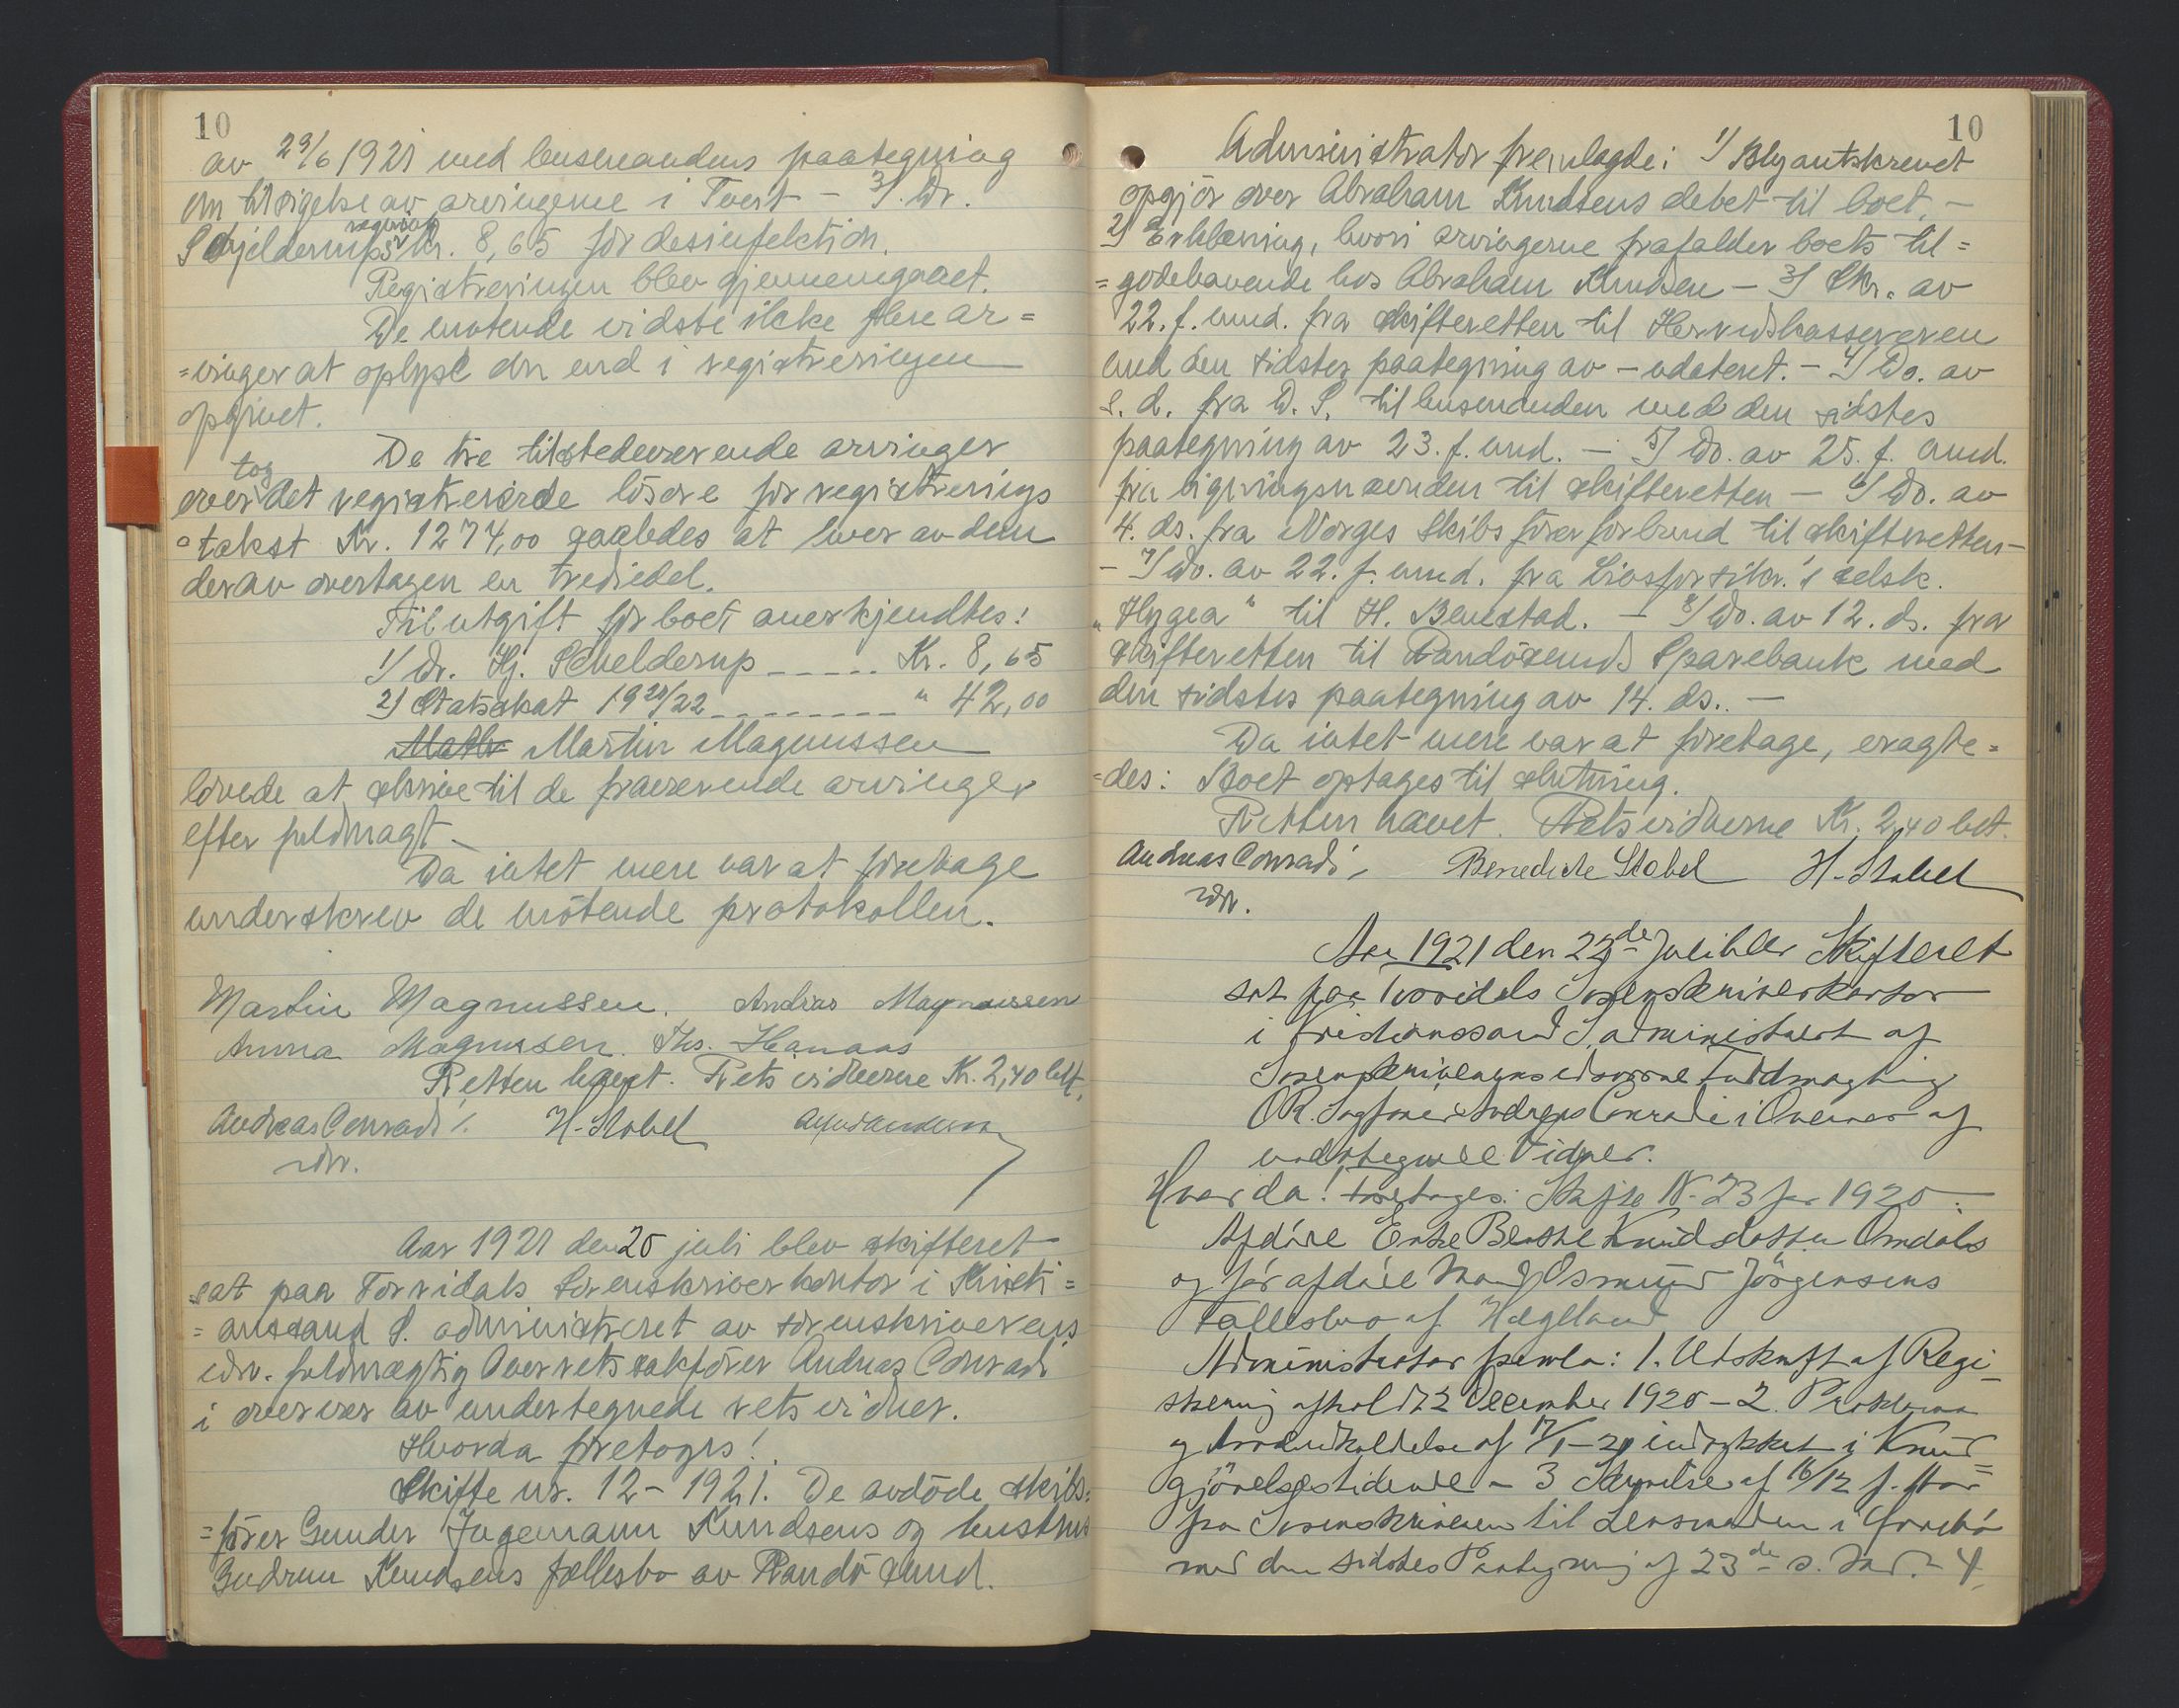 10
av 29/6 1921 med lensmandens paategning
om tilsigelse av arvingerne i Tveit – 3/ Dr.
Schjelderups regning Kr. 8,65 for desinfektion.
Registreringen blev gjennemgaaet.
De møtende vidste ikke flere ar=
=vinger at oplyse om end i registreringen
opgivet.
De tre tilstedeværende arvinger
tog
over det registrerede løsøre for registrerings
=takst Kr. 1274,00 saaledes at hver av dem
derav overtagen en trediedel.
Til utgift for boet anerkjendtes:
1/ Dr. Hj. Schelderup ----- Kr. 8,65
2/ Statsskat 1921/22 -------- " 42,00
Martin Magnussen
lovede at skrive til de fraværende arvinger
efter fuldmagt.
Da intet mere var at foretage
underskrev de møtende protokollen.
Martin Magnussen. Andreas Magnussen
Anna Magnussen. Ths. Haanaas
Retten hævet. Retsvidnerne Kr. 2,40 bet.
Andreas Conradi /. H. Stabel
edv.
Aar 1921 den 20 juli blev skifteret
sat paa Torridals sorenskriverkontor i Kristi=
=anssand S. administreret av sorenskriverens
edv. fuldmægtig Overretssakfører Andreas Conradi
i overvær av undertegnede retsvidner.
Hvorda foretoges!
Skifte nr. 12 – 1921. De avdøde skibs=
=fører Gunder Ingemann Knudsens og hustrus
Gudrun Knudsens fællesbo av Randøsund.
10
Administrator fremlagde: 1/ Blyantskrevet
opgjør over Abraham Knudsens debet til boet. –
2/ Erklæring, hvori arvingerne frafalder boets til=
=godehavende hos Abraham Knudsen – 3/ Skr. av
22. f. mnd. fra skifteretten til Herredskassereren
med den sidstes paategning av – udateret. – 4/ Do. av
s. d. fra D. S. til lensmanden med den sidstes
paategning av 23. f. mnd. – 5/ Do. av 25. f. mnd.
fra ligningsnævnden til skifteretten – 6/ Do. av
4. ds. fra Norges Skibsførerforbund til skifteretten –
– 7/ Do. av 22. f. mnd. fra Livsforsikr.'s selsk.
"Hygea" til H. Benestad. – 8/ Do. av 12. ds. fra
skifteretten til Randøsunds Sparebank med
den sidstes paategning av 14. ds.. –
Da intet mere var at foretage, eragte=
=des: Boet optages til slutning.
Retten hævet. Retsvidnerne Kr. 2,40 bet.
Andreas Conradi /. Benedicte Stabel H. Stabel
edv.
Aar 1921 den 22de Juli blev Skifteret
sat paa Torridals Sorenskriverkontor
i Kristianssand S. administrert af
Sorenskriverens edsvorne Fuldmægtig
OR. Sagfører Andreas Conradi i Overvær af
undertegnede Vidner.
Hvorda! foretoges: Skifte N. 23 for 1920:
Afdøde Enke Berthe Knudsdatter Omdals
og før afdøde Mand Osmund Jørgensens
Fællesbo af Hægeland
Administrator fremla: 1. Udskrift af Regi=
strering afholdt 2 December 1920 – 2. Proklama
og Arveindkaldelse af 17/1 – 21 indrykket i Kund=
gjørelsestidende – 3 Skrivelse af 16/12 f. Aar
fra Sorenskriveren til Lensmanden i
med den sidstes Paategning af 23de s. Md. – 4.